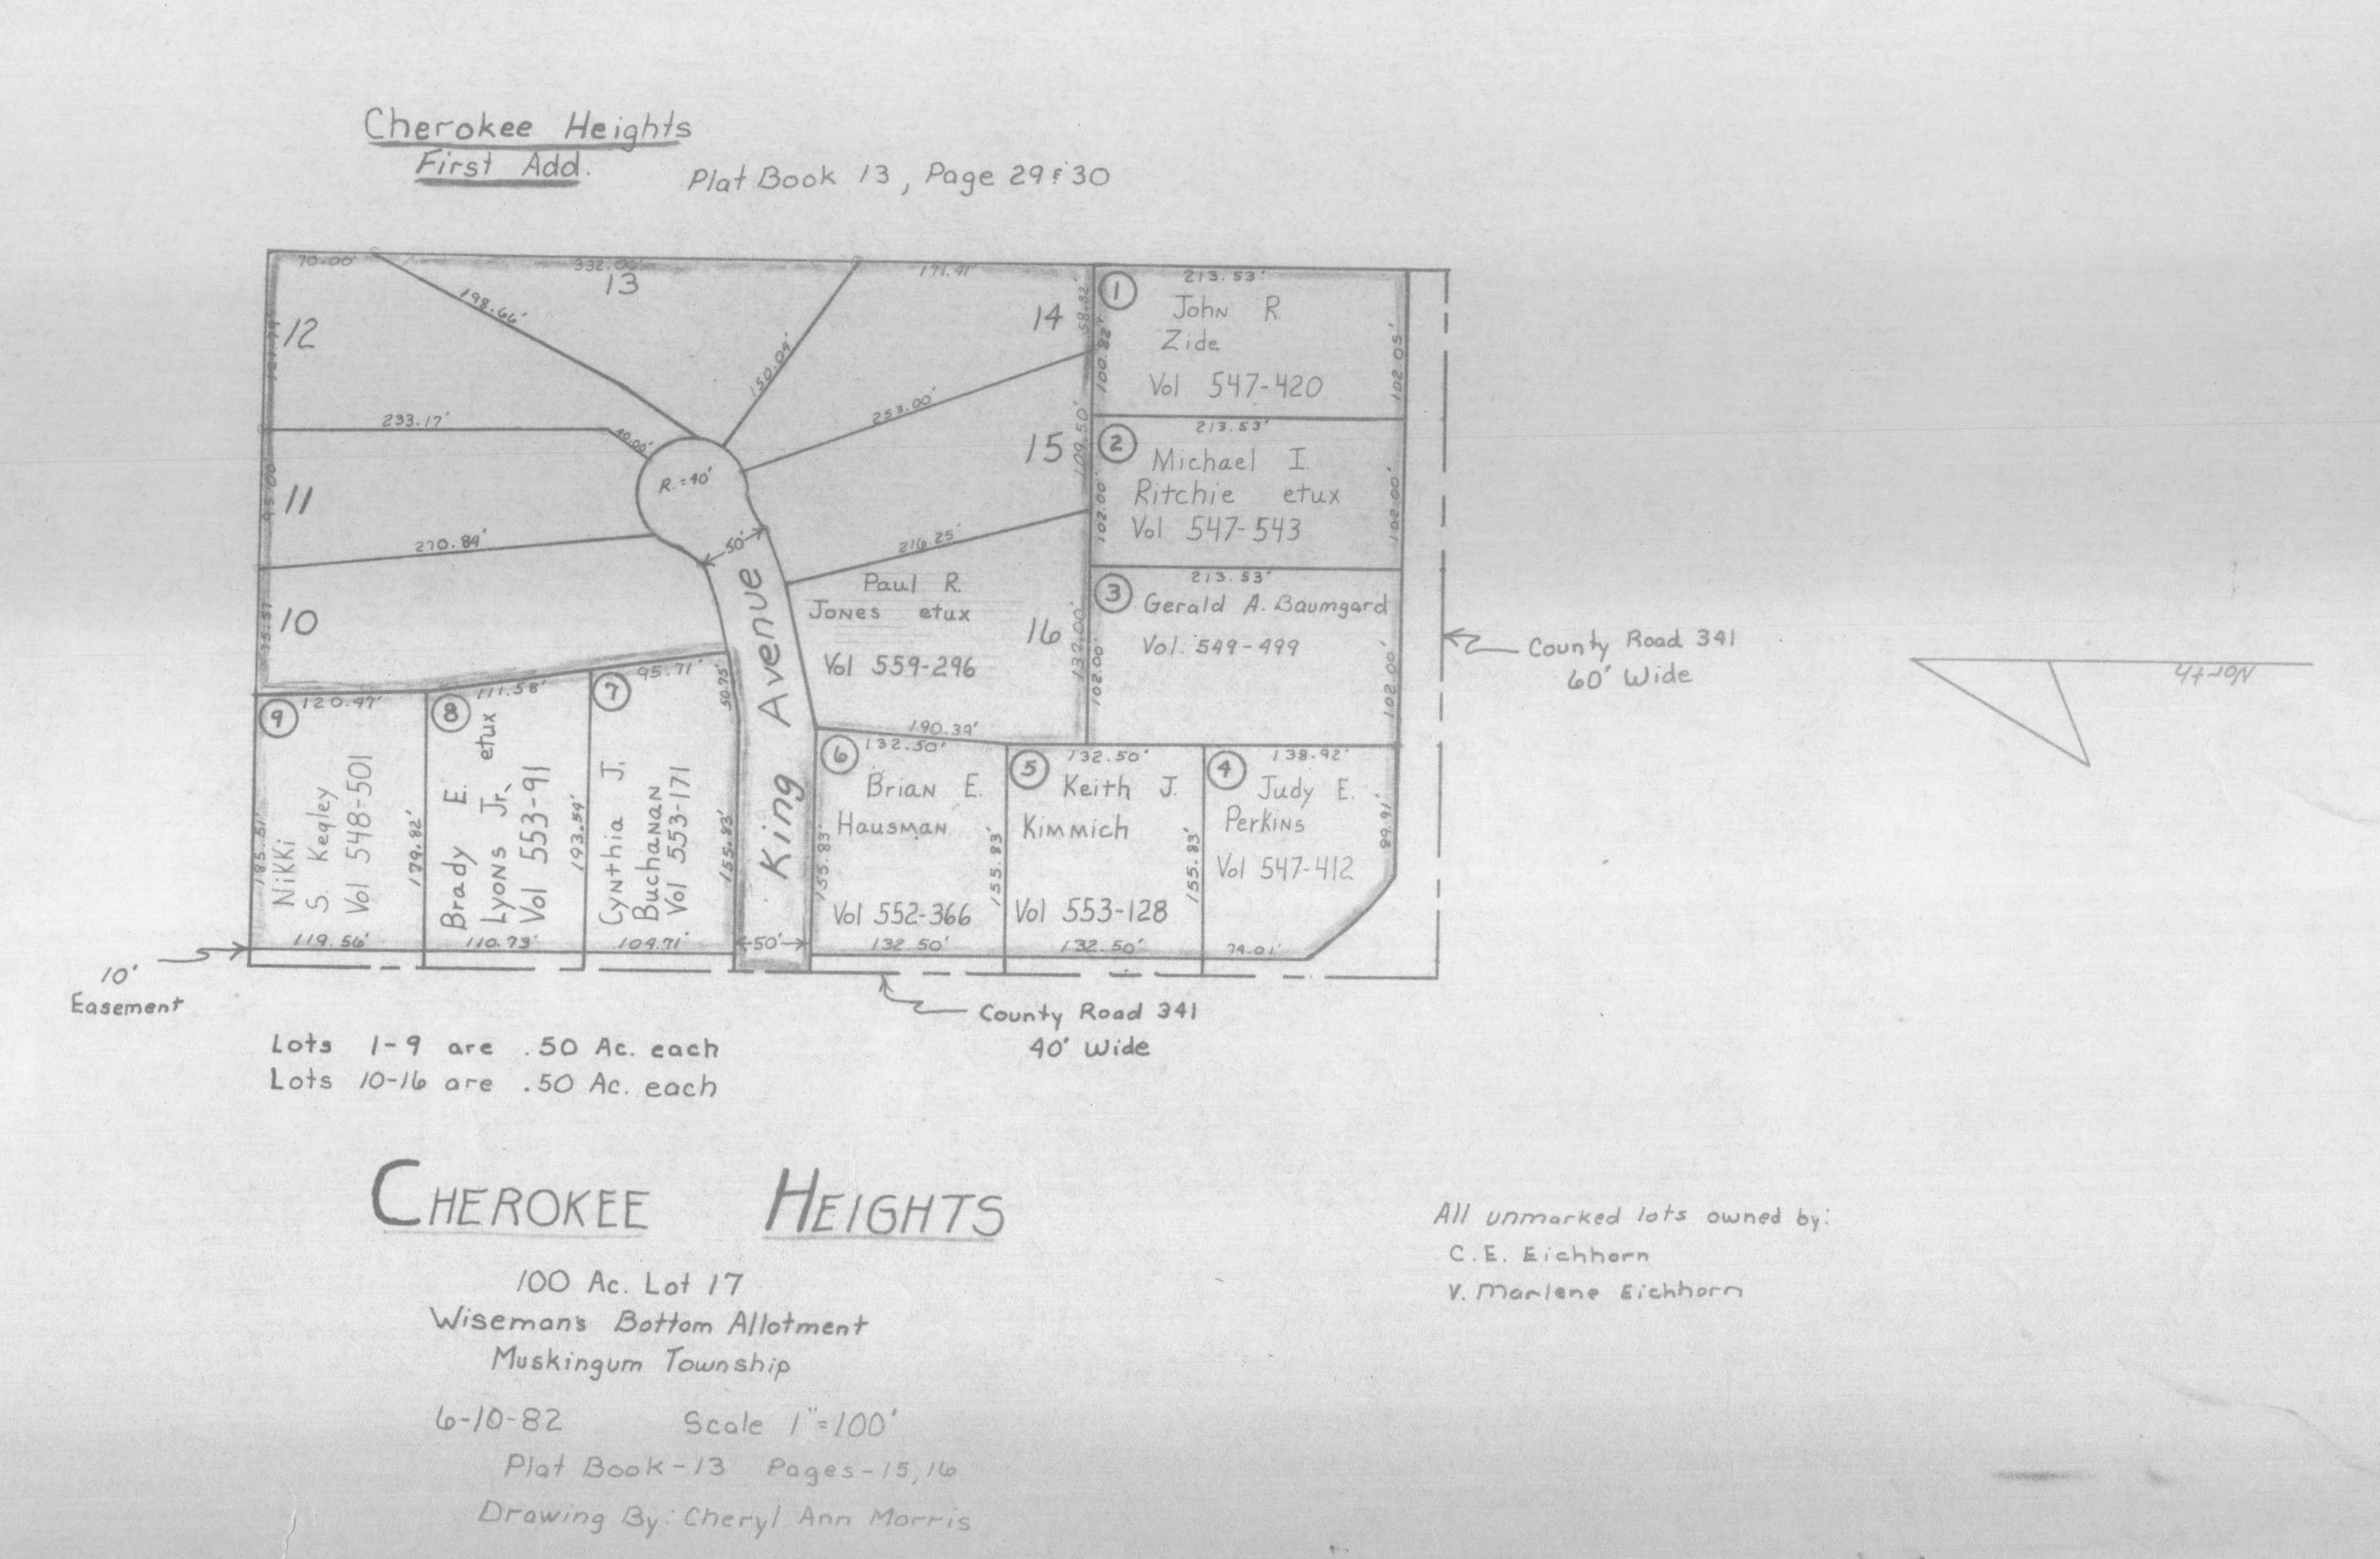 Cherokee Heights
First Add.
Plat Book 13, Page 29 & 30
70.00'
332.00'
171.41'
213.53'
12
198.66'
13
150.04'
14
58.82'
100.82'
1
John R.
Zide
Vol 547-420
102.05'
233.17'
40.00'
253.00'
15
109.50'
213.53'
2
Michael I.
Ritchie etux
Vol 547-543
102.00'
102.00'
11
95.00'
R.=40'
270.84'
50'
216.25'
213.53'
3
Gerald A. Baumgard
Vol. 549-499
102.00'
102.00'
10
75.57'
Paul R.
Jones etux
Vol 559-296
16
132.00'
190.39'
King Avenue
50'
County Road 341
60' Wide
North
9
120.47'
185.51'
Nikki
S. Kegley
Vol 548-501
179.82'
119.56'
8
111.58'
Brady E.
Lyons Jr, etux
Vol 553-91
193.54'
110.73'
7
95.71'
50.75'
Cynthia J.
Buchanan
Vol 553-171
155.83'
104.71'
6
132.50'
Brian E.
Hausman
155.83'
Vol 552-366
132.50'
5
132.50'
Keith J.
Kimmich
155.83'
Vol 553-128
132.50'
4
138.92'
Judy E.
Perkins
155.83'
Vol 547-412
99.91'
74.01'
10'
Easement
County Road 341
40' Wide
Lots 1-9 are .50 Ac. each
Lots 10-16 are .50 Ac. each
CHEROKEE HEIGHTS
100 Ac. Lot 17
Wiseman's Bottom Allotment
Muskingum Township
6-10-82 Scale 1"=100'
Plat Book-13 Pages-15,16
Drawing By: Cheryl Ann Morris
All unmarked lots owned by:
C.E. Eichhorn
V. Marlene Eichhorn